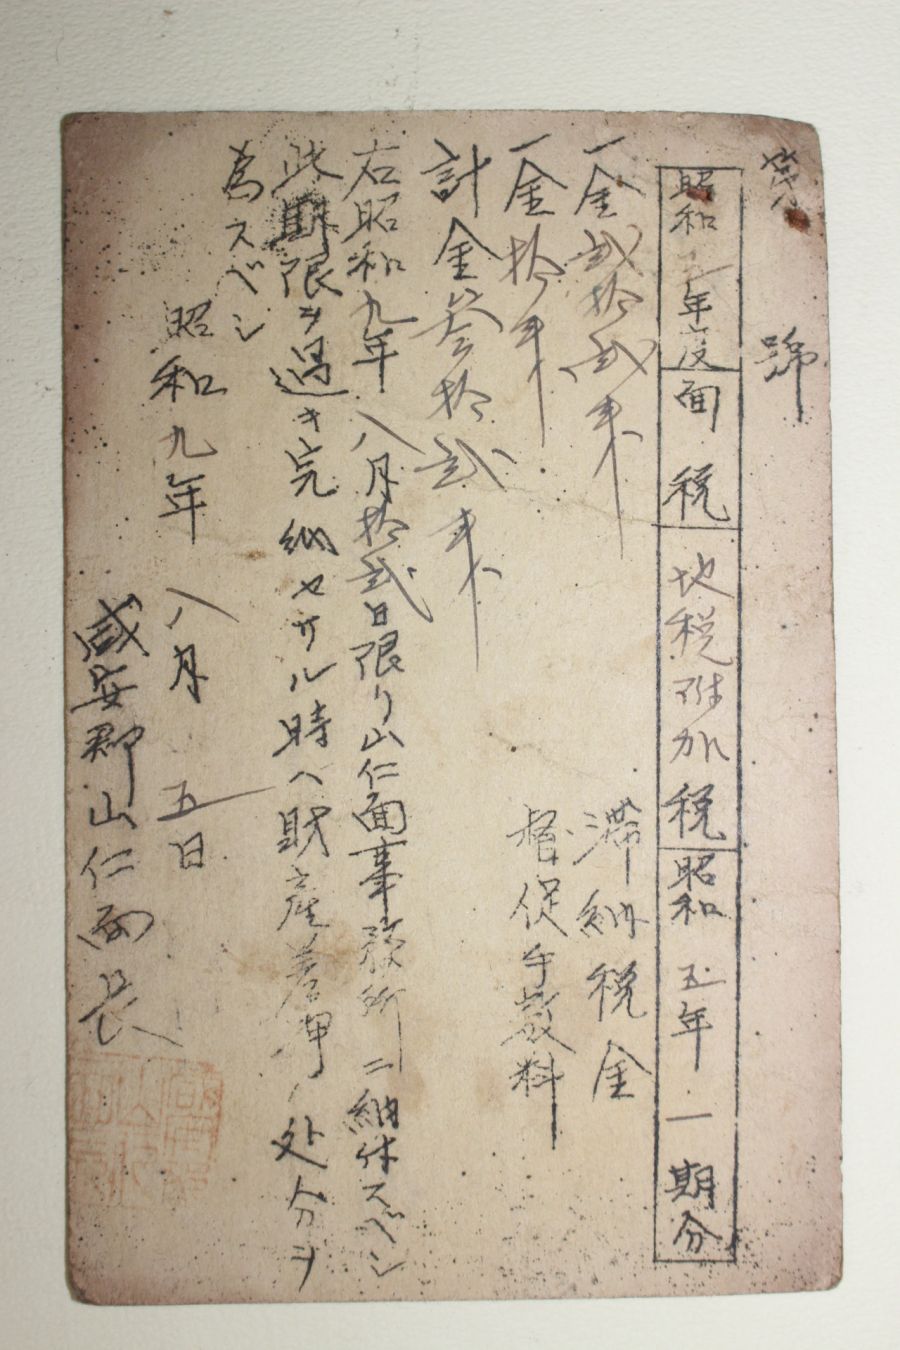 第 號
昭和五年度 面税 地税附加税 昭和五年一期分
一金貳拾貳銭 滞納税金
一金拾銭 督促手数料
計金參拾貳銭
右昭和九年八月拾貳日限リ山仁面事務所ニ納付スベシ
此期限ヲ過キ完納セサル時ハ財産差押ノ処分ヲ
為スベシ
昭和九年八月五日
咸安郡山仁面長